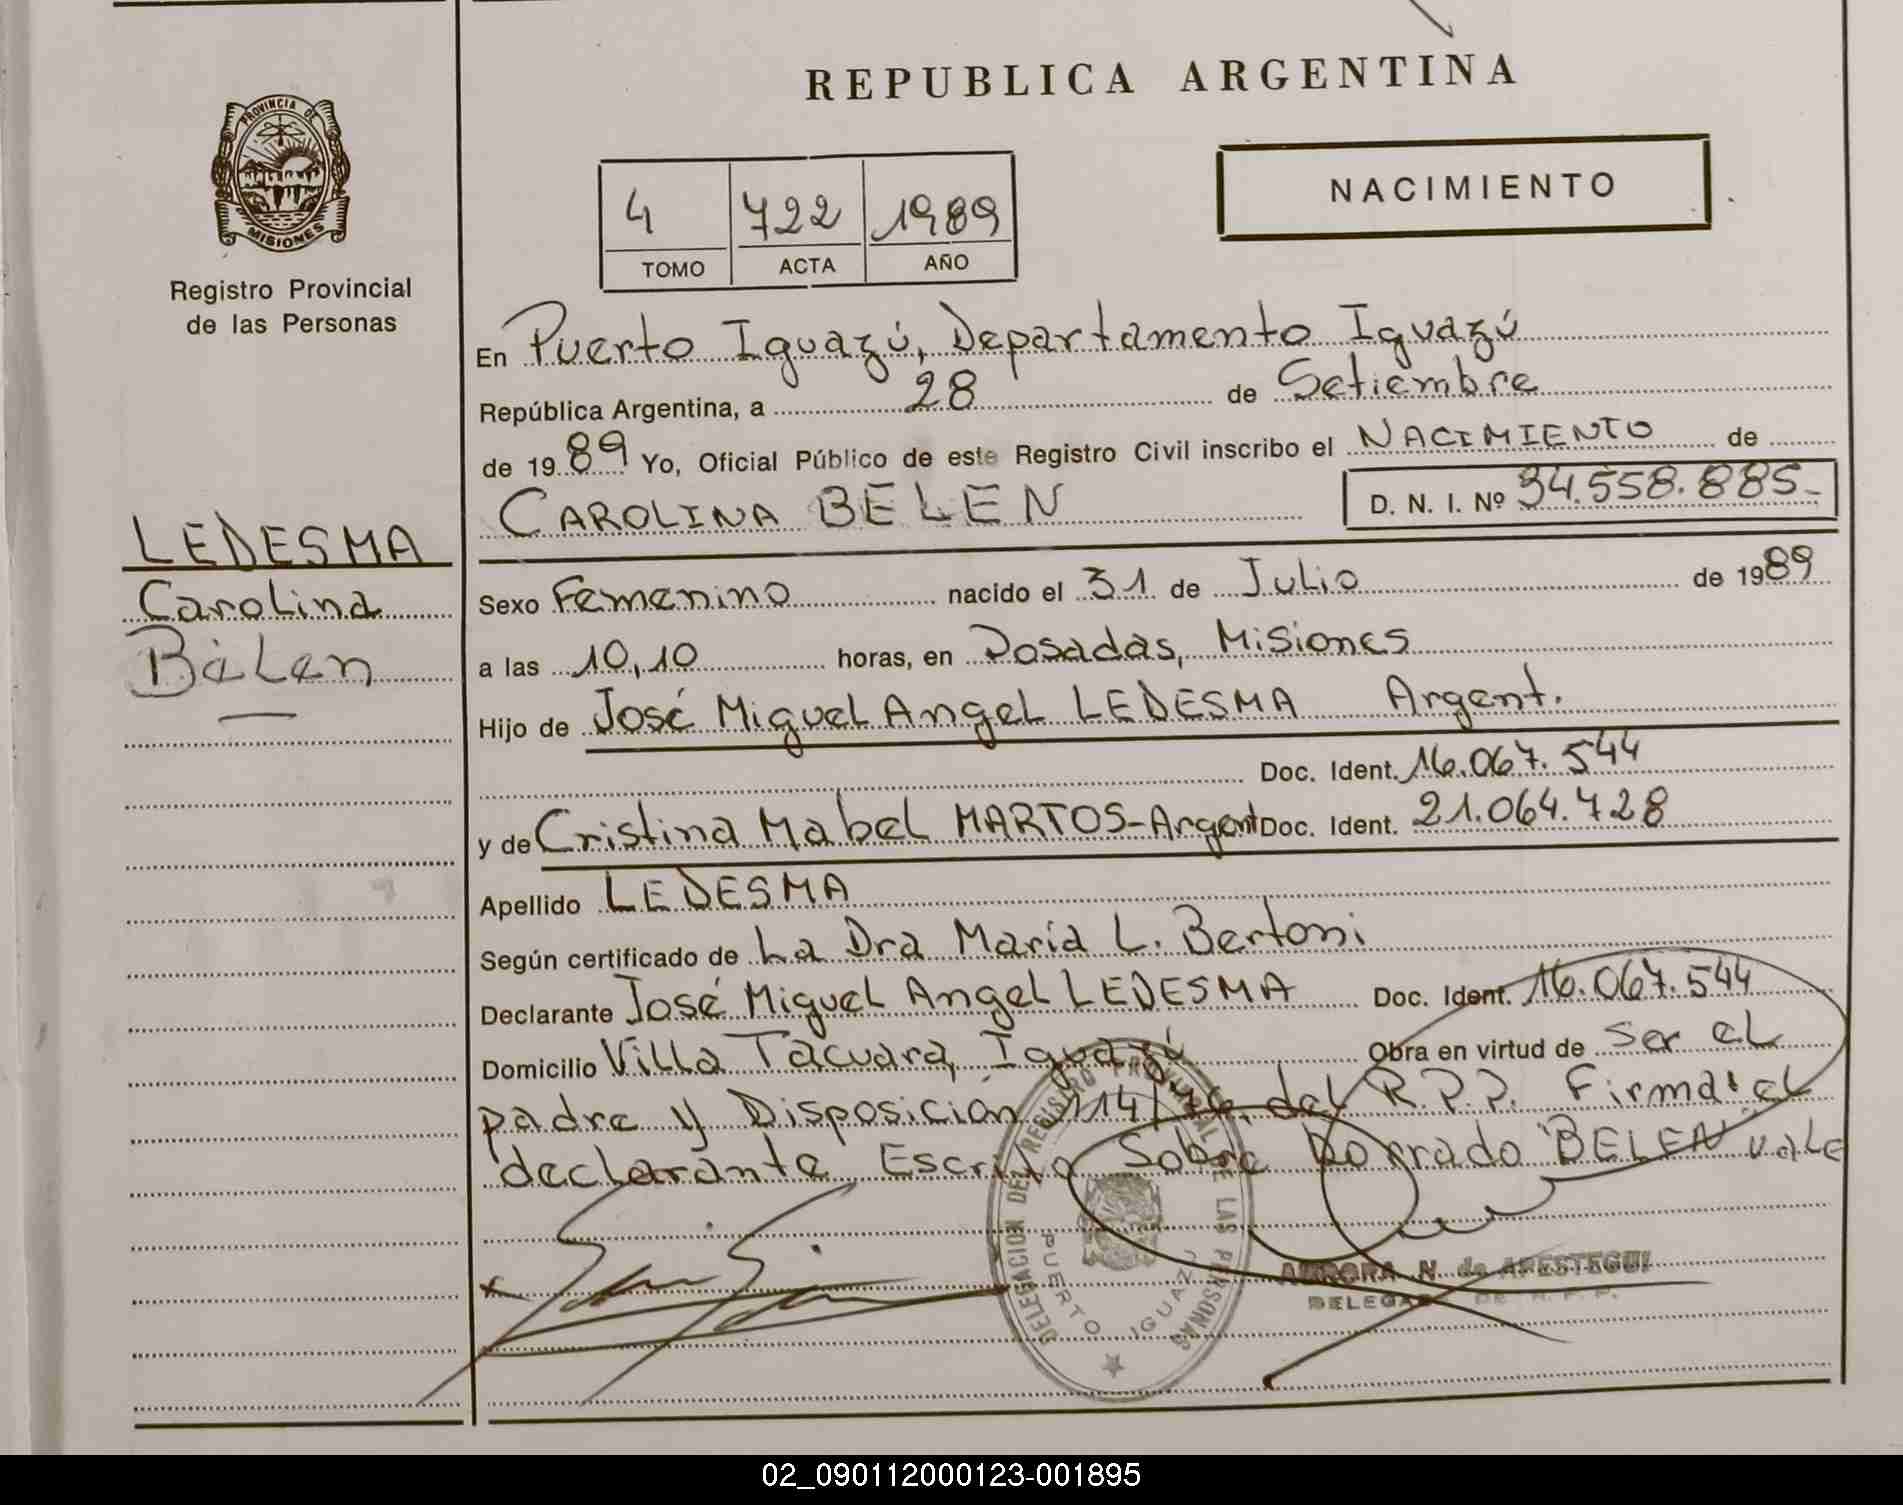 REPUBLICA ARGENTINA
PROVINCIA DE
MISIONES
Registro Provincial
de las Personas
NACIMIENTO
4 722 1989
TOMO ACTA AÑO
En Puerto Iguazú, Departamento Iguazú
República Argentina, a 28 de Setiembre
de 19 89 Yo, Oficial Público de este Registro Civil inscribo el NACIMIENTO de
CAROLINA BELEN D. N. I. Nº 34.558.885-
LEDESMA
Carolina
Belen
Sexo Femenino nacido el 31 de Julio de 1989
a las 10,10 horas, en Posadas, Misiones
Hijo de José Miguel Angel LEDESMA Argent.
Doc. Ident. 16.067.544
y de Cristina Mabel MARTOS-Argent Doc. Ident. 21.064.728
Apellido LEDESMA
Según certificado de La Dra María L. Bertoni
Declarante José Miguel Angel LEDESMA Doc. Ident. 16.067.544
Domicilio Villa Tacuara, Iguazú Obra en virtud de ser el
padre y Disposición 114/76, del R.P.P. Firma el
declarante Escrito Sobre Borrado "BELEN" vale
DELEGACION DEL REGISTRO PROVINCIAL DE LAS PERSONAS
PUERTO IGUAZU
AURORA N. de APESTEGUI
DELEGADA DE R. P. P.
02_090112000123-001895